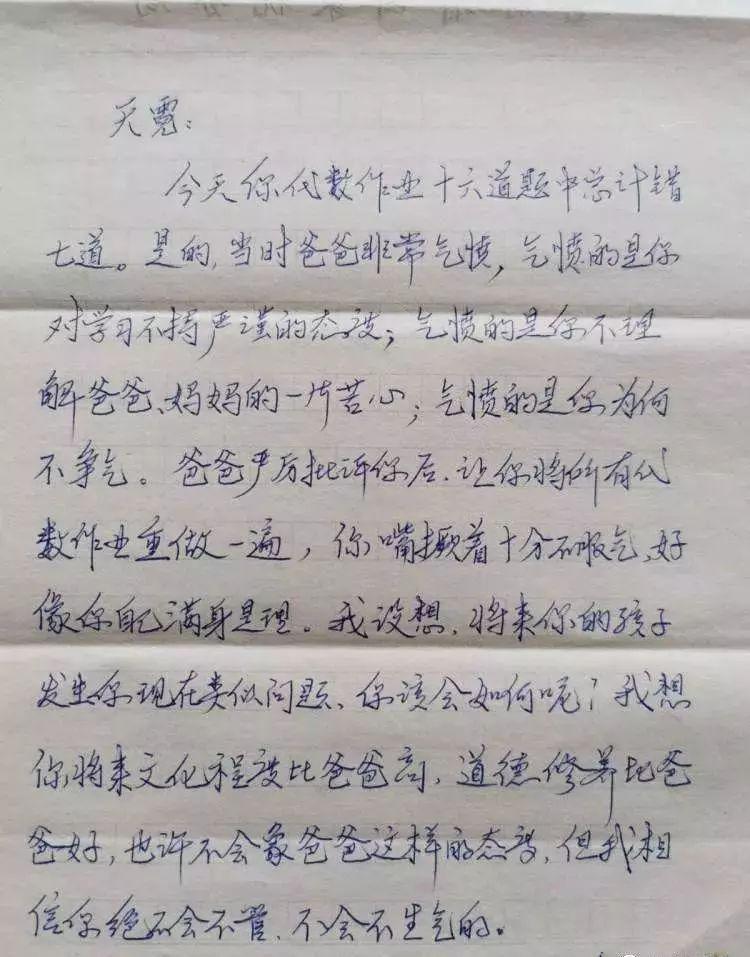 天霓：
今天你代数作业十六道题中总计错
七道。是的，当时爸爸非常气愤，气愤的是你
对学习不持严谨的态度；气愤的是你不理
解爸爸、妈妈的一片苦心；气愤的是你为何
不争气。爸爸严厉批评你后，让你将所有代
数作业重做一遍，你嘴撅着十分不服气，好
像你自己满身是理。我设想，将来你的孩子
发生你现在类似问题、你该会如何呢？我想
你将来文化程度比爸爸高，道德修养比爸
爸好，也许不会象爸爸这样的态度，但我相
信你绝不会不管、不会不生气的。